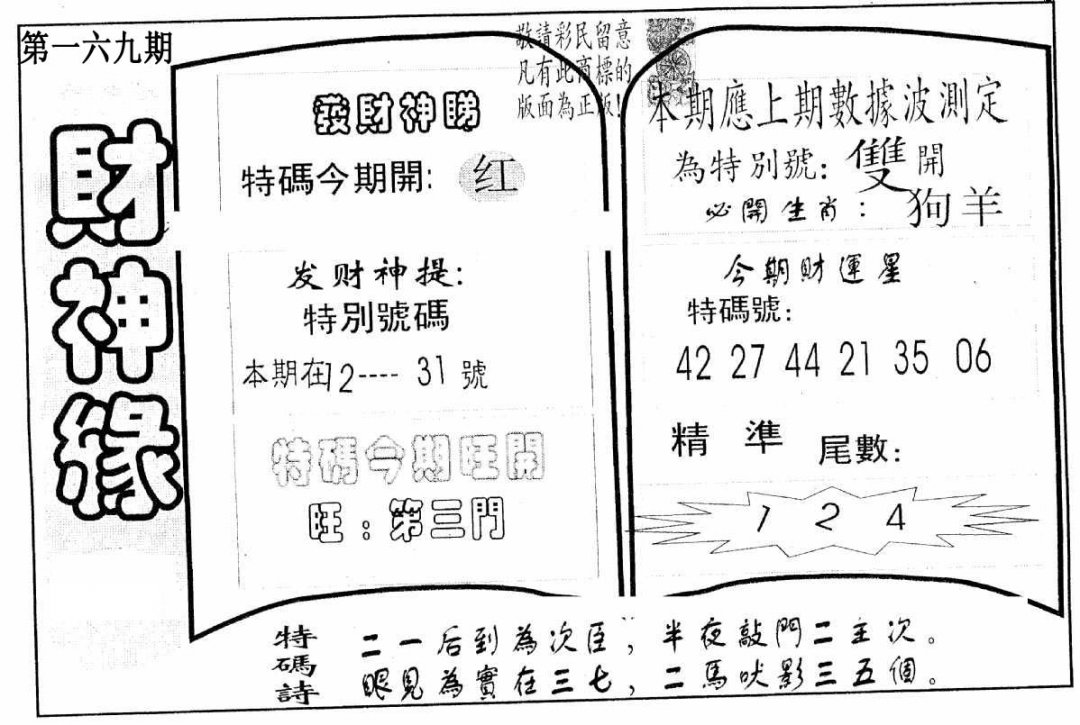 第一六九期
財神緣
敬請彩民留意
凡有此商標的
版面為正版!
發財神賜
特碼今期開: 红
发财神提:
特別號碼
本期在12---- 31 號
特碼今期旺開
旺:第三門
本期應上期數據波測定
為特別號: 雙開
必開生肖: 狗羊
今期財運星
特碼號:
42 27 44 21 35 06
精 準 尾數:
1 2 4
特碼詩
二一后到為次臣, 半夜敲門二主次。
眼見為實在三七, 二馬吠影三五個。